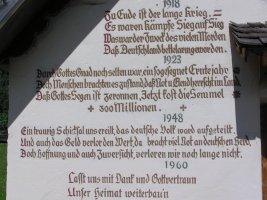 1918
Zu Ende ist der lange Krieg.
Es waren Kämpfe Sieg auf Sieg
Was war der Zweck des vielen Morden
Daß Deutschland bettelarm geworden.
1923
Durch Gottes Gnad noch selten war, ein so gesegnet Erntejahr
Doch Menschen brachten es zustand, daß Not u. Elend herrscht im Land.
Daß Gottes Segen ist zeronnen, Jetzt kost die Semmel
300 Millionen.
1948
Ein traurig Schicksal uns ereilt, das deutsche Volk ward aufgeteilt,
Und auch das Geld verlor den Wert, da bracht viel Not an deutschen Herd,
Doch Hoffnung und auch Zuversicht, verloren wir noch lange nicht.
1960
Lasst uns mit Dank und Gottvertraun
Unser Heimat weiterbaun